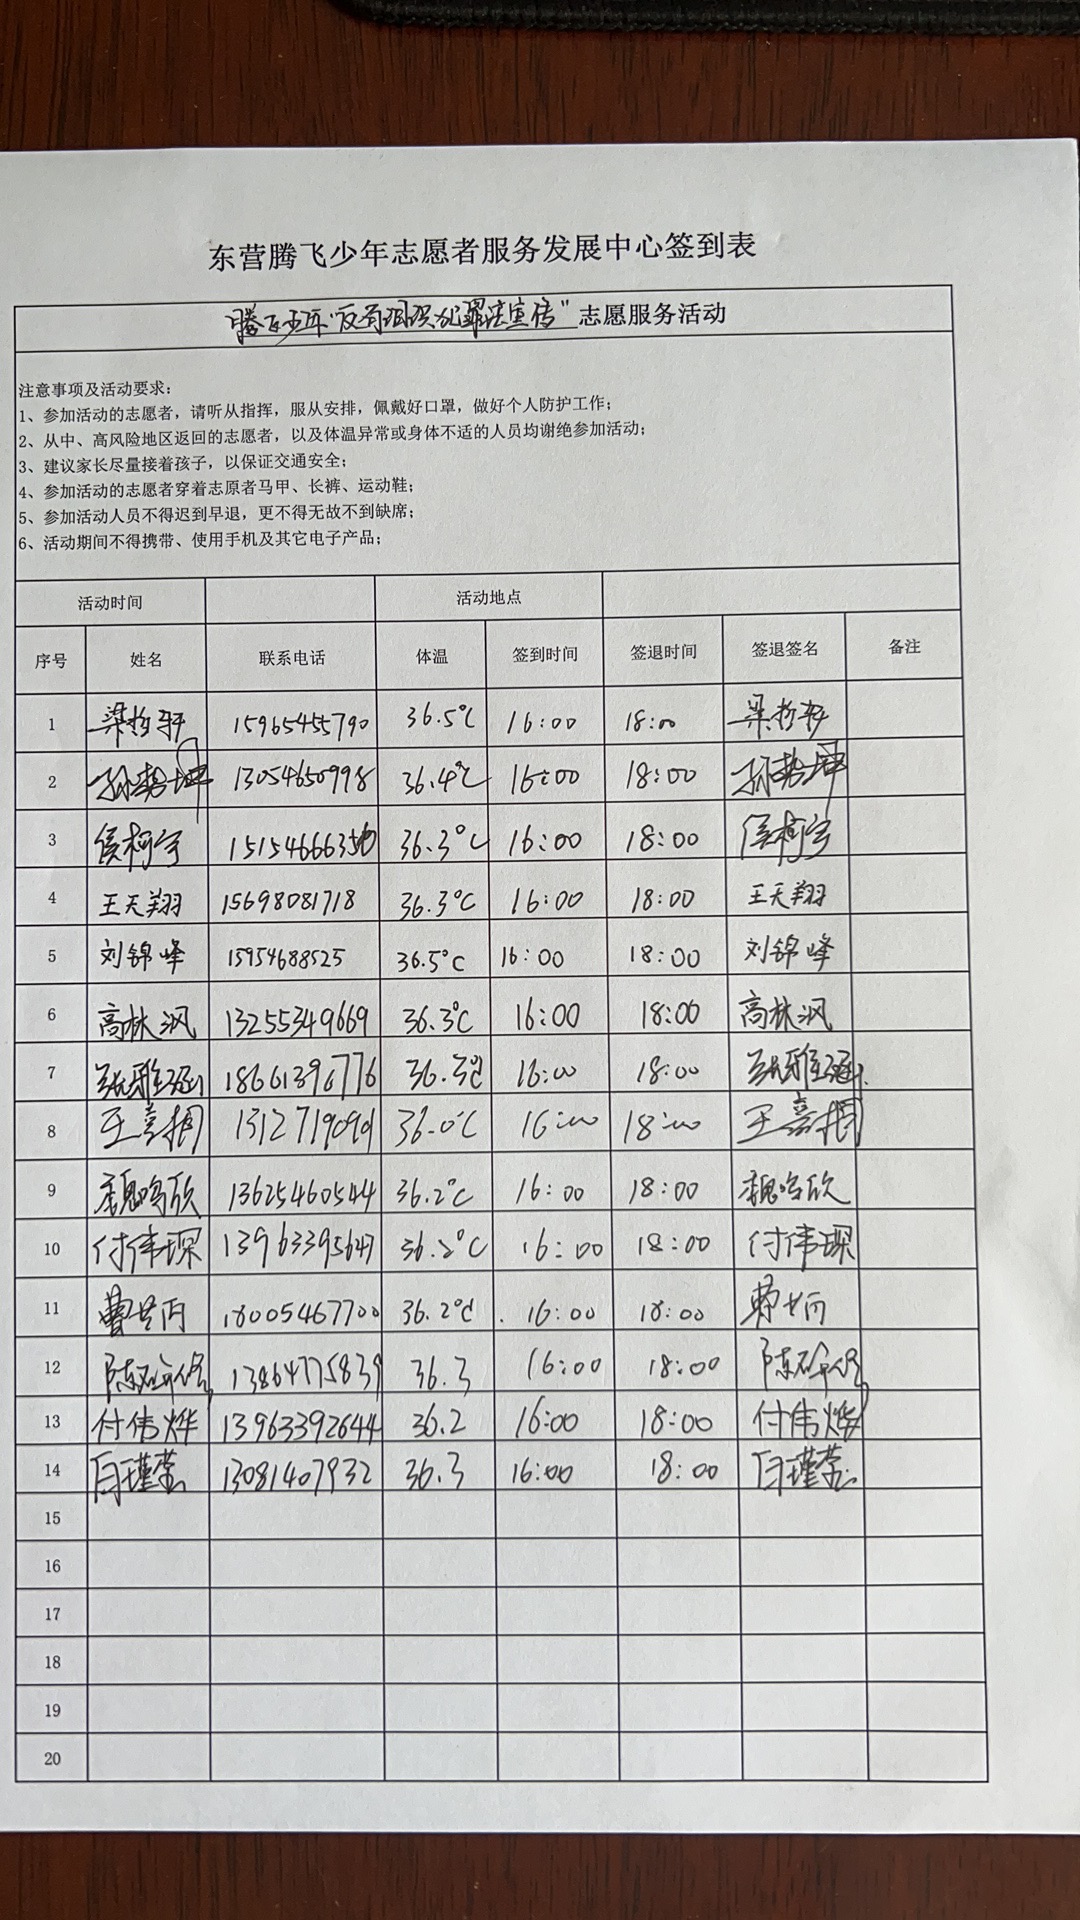 东营腾飞少年志愿者服务发展中心签到表
腾飞少年"反有组织犯罪法宣传"志愿服务活动
注意事项及活动要求：
1、参加活动的志愿者，请听从指挥，服从安排，佩戴好口罩，做好个人防护工作；
2、从中、高风险地区返回的志愿者，以及体温异常或身体不适的人员均谢绝参加活动；
3、建议家长尽量接着孩子，以保证交通安全；
4、参加活动的志愿者穿着志原者马甲、长裤、运动鞋；
5、参加活动人员不得迟到早退，更不得无故不到缺席；
6、活动期间不得携带、使用手机及其它电子产品；
活动时间 活动地点
序号 姓名 联系电话 体温 签到时间 签退时间 签退签名 备注
1 梁哲轩 15965455790 36.5℃ 16:00 18:00 梁哲轩
2 孙梦坤 13054650998 36.4℃ 16:00 18:00 孙梦坤
3 侯柯宇 36.3℃ 16:00 18:00 侯柯宇
4 王天翔 15698081718 36.3℃ 16:00 18:00 王天翔
5 刘锦峰 15954688525 36.5℃ 16:00 18:00 刘锦峰
6 高林沨 13255349669 36.3℃ 16:00 18:00 高林沨
7 张雅涵 18661396776 36.3℃ 16:00 18:00 张雅涵
8 36.0℃ 16:00 18:00
9 魏鸣欣 13625460544 36.2℃ 16:00 18:00 魏鸣欣
10 付伟琛 36.2℃ 16:00 18:00 付伟琛
11 18005467700 36.2℃ 16:00 18:00
12 13864775839 36.3 16:00 18:00
13 付伟烨 13963392644 36.2 16:00 18:00 付伟烨
14 白瑾萱 13081407932 36.3 16:00 18:00 白瑾萱
15
16
17
18
19
20